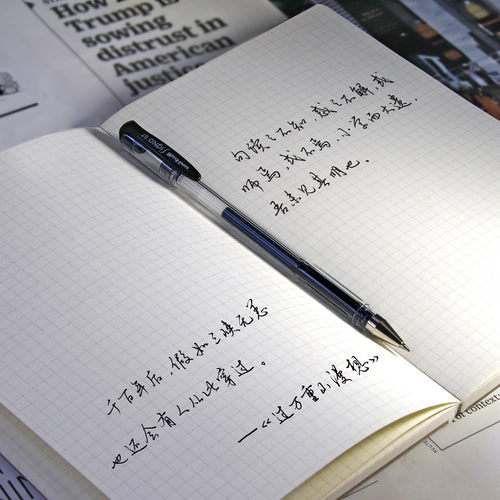 How
Trump is
sowing
distrust in
American
justice
句读之不知,惑之不解,或
师焉,或不焉,小学而大遗,
吾未见其明也。
uni-ball SIGNO
千百年后,假如三峡无恙
也还会有人从此穿过。
—《过万重山漫想》